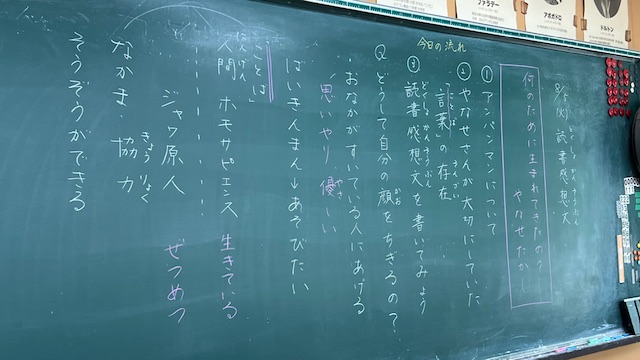 8/5(火) 読書感想文
どくしょかんそうぶん
何のために生まれてきたの?
やなせたかし
今日の流れ
① アンパンマンについて
② やなせさんが大切にしていた
「言葉」の存在
ことば そんざい
③ 読書感想文を書いてみよう
どくしょかんそうぶん
Q どうして自分の顔をちぎるの?
かお
おなかがすいている人にあげる
思いやり 優しい
やさ
ばいきんまん→あそびたい
ことば
人間 ホモサピエンス 生きている
にんげん
ジャワ原人 ぜつめつ
なかま・協力
きょうりょく
そうぞうができる
ファラデー
アボガドロ
ドルトン